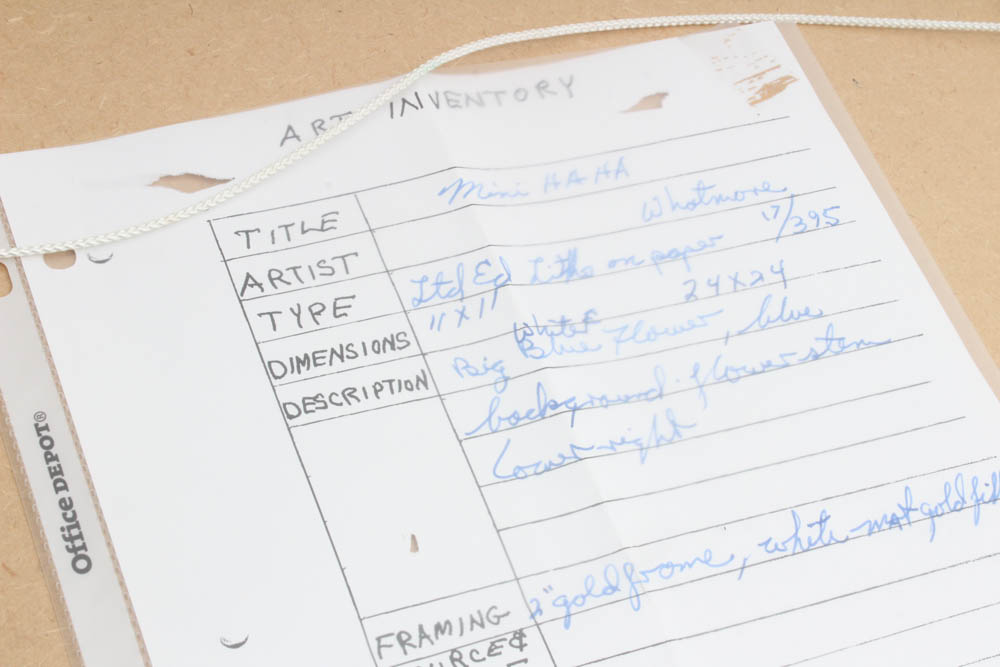 ART INVENTORY
TITLE Mini HAHA
ARTIST Whatmore
TYPE Ltd Ed Litho on paper 17/395
DIMENSIONS 11 X 11 24 X 24
White
DESCRIPTION Big Blue Flower, blue
background. flower stem
lower right
FRAMING 2" gold frame, white mat gold
Office DEPOT®